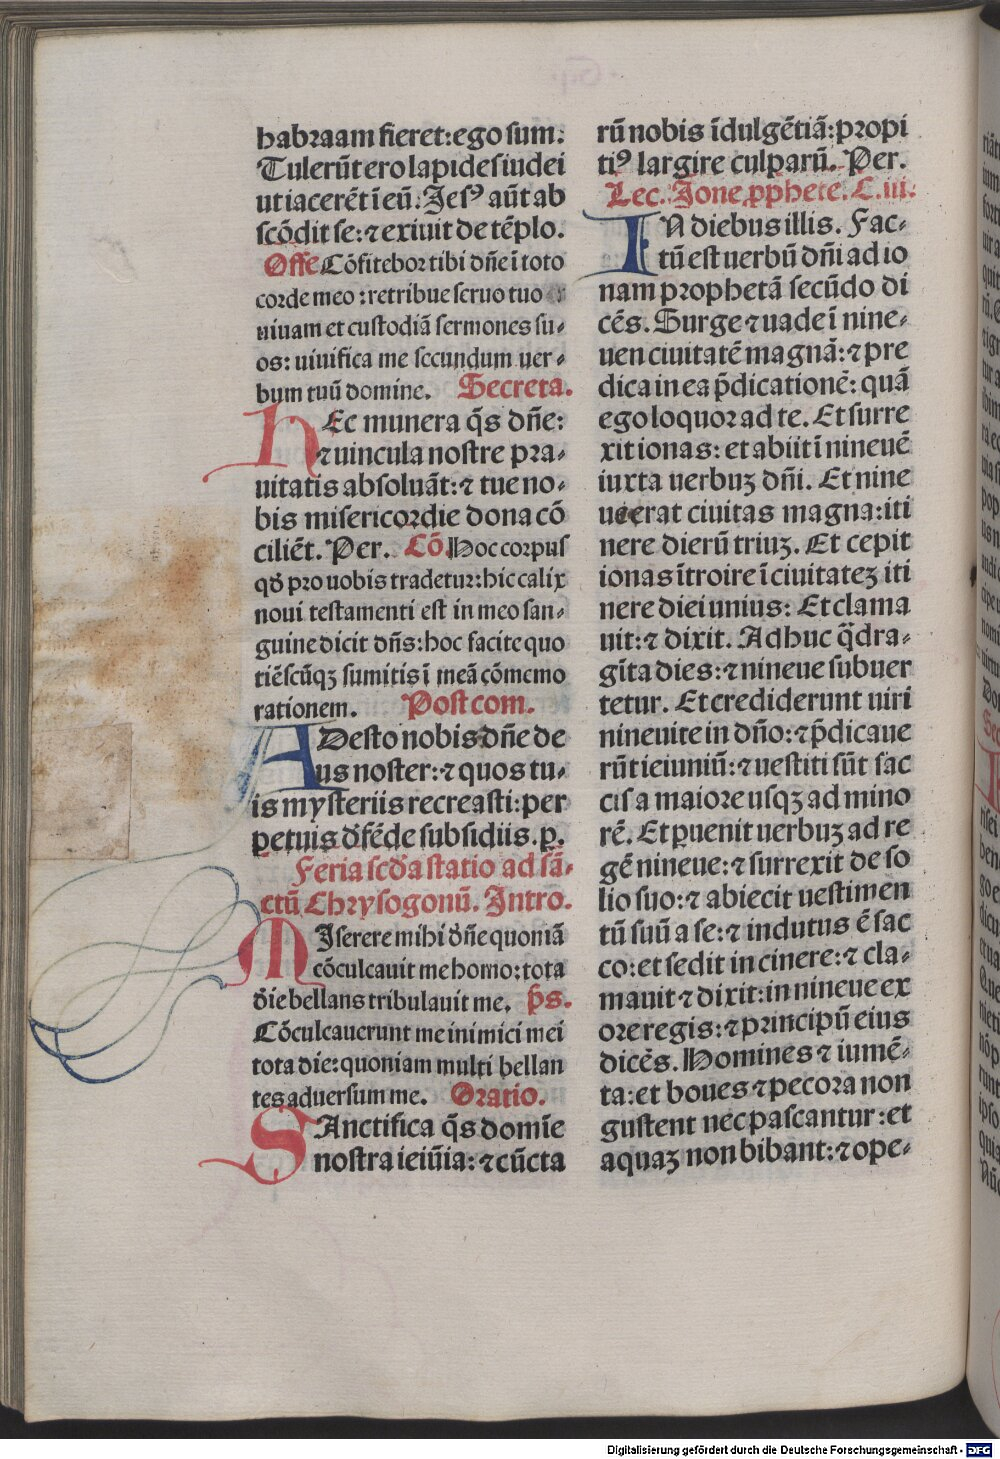 habraam fieret: ego sum.
Tulerūt ero lapides iudei
ut iacerēt ī eū. Jesꝰ aūt ab
scōdit se: ⁊ exiuit de tēplo.
Offe Cōfitebor tibi dn̄e ī toto
corde meo: retribue seruo tuo
uiuam et custodiā sermones su⸗
os: uiuifica me secundum uer⸗
bum tuū domine. Secreta.
hEc munera q̄s dn̄e:
⁊ uincula nostre pra⸗
uitatis absoluāt: ⁊ tue no⸗
bis misericordie dona cō
ciliēt. Per. Cō. Hoc corpus
qd̄ pro uobis tradetur: hic calix
noui testamenti est in meo san⸗
guine dicit dn̄s: hoc facite quo
tiēscūqꝫ sumitis ī meā cōmemo
rationem. Post com.
ADesto nobis dn̄e de
us noster: ⁊ quos tu⸗
is mysteriis recreasti: per
petuis d̄fēde subsidiis. p.
Feria scd̄a statio ad sā⸗
ctū Chrysogonū. Intro.
MIserere mihi dn̄e quoniā
cōculcauit me homo: tota
die bellans tribulauit me. p̄s.
Cōculcauerunt me inimici mei
tota die: quoniam multi bellan
tes aduersum me. Oratio.
SAnctifica q̄s domīe
nostra ieiūia: ⁊ cūcta
rū nobis īdulgētiā: propi
tiꝰ largire culparū. Per.
Lec. Jone ꝓphete. C. iii.
IN diebus illis. Fac⸗
tū est uerbū dn̄i ad io
nam prophetā secūdo di
cēs. Surge ⁊ uade ī nine⸗
uen ciuitatē magnā: ⁊ pre
dica in ea p̄dicationē: quā
ego loquor ad te. Et surre
xit ionas: et abiit ī nineuē
iuxta uerbuꝫ dn̄i. Et nine
ue erat ciuitas magna: iti
nere dierū triuꝫ. Et cepit
ionas ītroire ī ciuitateꝫ iti
nere diei unius: Et clama
uit: ⁊ dixit. Adhuc q̄dra⸗
gīta dies: ⁊ nineue subuer
tetur. Et crediderunt uiri
nineuite in dn̄o: ⁊ p̄dicaue
rūt ieiuniū: ⁊ uestiti sūt sac
cis a maiore usqꝫ ad mino
rē. Et ꝑuenit uerbuꝫ ad re
gē nineue: ⁊ surrexit de so
lio suo: ⁊ abiecit uestimen
tū suū a se: ⁊ indutus ē sac
co: et sedit in cinere: ⁊ cla⸗
mauit ⁊ dixit: in nineue ex
ore regis: ⁊ principū eius
dicēs. Homines ⁊ iumē⸗
ta: et boues ⁊ pecora non
gustent nec pascantur: et
aquaꝫ non bibant: ⁊ ope⸗
Digitalisierung gefördert durch die Deutsche Forschungsgemeinschaft - DFG